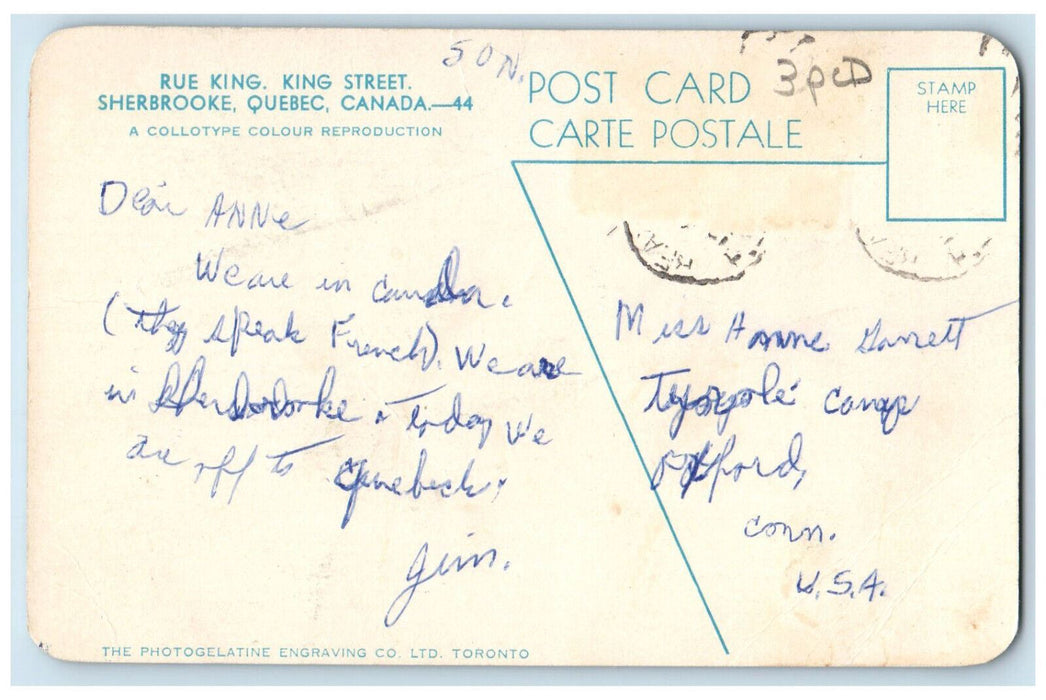 RUE KING. KING STREET.
SHERBROOKE, QUEBEC, CANADA.—44
A COLLOTYPE COLOUR REPRODUCTION
SON.
POST CARD
CARTE POSTALE
3pcD
STAMP
HERE
Dear ANNe
We are in canada.
(they speak French). We are
in Sherbrooke. Today we
are off to Quebeck.
Jim.
Miss Hanne Garrett
camp
Oxford,
conn.
U.S.A.
THE PHOTOGELATINE ENGRAVING CO. LTD. TORONTO